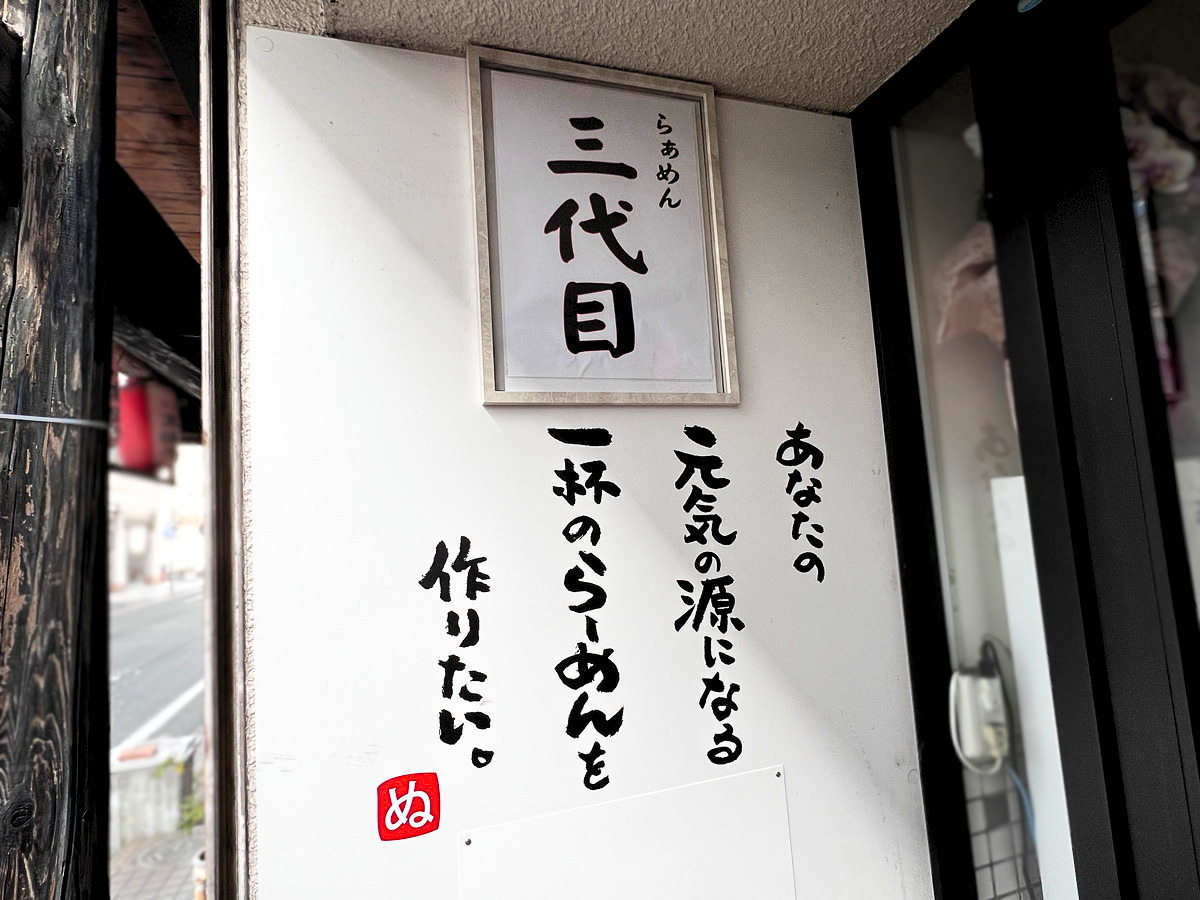 らぁめん
三代目
あなたの
元気の源になる
一杯のらーめんを
作りたい。
ぬ